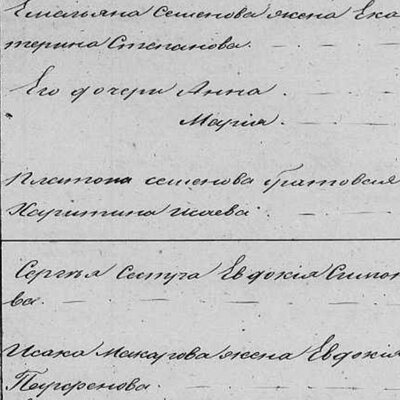 Емельяна Семенова жена Ека
терина Степанова.
Его дочери Анна.
Марія.
Платона семенова
Харитина Исаева
Сергѣя Сестра Евдокія Симо
ва.
Исака Макарова жена Евдокія